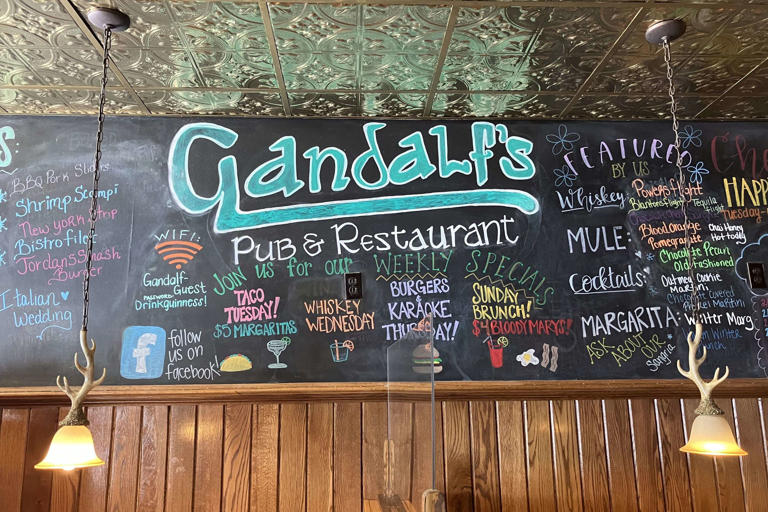 BBQ Pork Sliders
Shrimp Scampi
New York Strop
Bistro filet
Jordan's Smash
Burger
Italian
Wedding
Gandalf's
Pub & Restaurant
WiFi:
Gandalf-Guest
PASSWORD:
Drinkguinness!
follow
us on
facebook!
Join us for our WEEKLY SPECIALS
TACO
TUESDAY!
$5 MARGARITAS
WHISKEY
WEDNESDAY
BURGERS
&
KARAOKE
THURSDAY!
SUNDAY
BRUNCH!
$4 BLOODY MARYS!
FEATURED
BY US
Whiskey
Powers flight
Blantons flight
Tequila
flight
MULE:
Blood Orange
Pomegranate
Chai Honey
Hot toddy
Chocolate Pecan
Old fashioned
Cocktails
Oatmeal Cookie
Martini
MARGARITA
Winter Marg
ASK ABOUT OUR
Sangria
HAPPY
Tuesday-